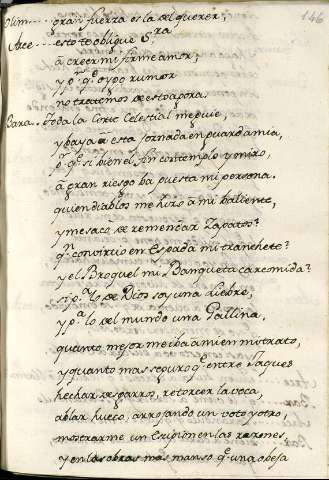 146
Olim.... gran fuerza es la del querer;
Arce.... esto te oblique S.ra
a creer mi firme amor,
y p.r q.e oygo rumor
no tratemos de esto agora.
Bara.. Toda la Corte Celestial me guie,
y baya a esta Jornada en guarda mia,
p.r q.e si bien el fin contemplo y miro,
a gran riesgo ba puesta mi persona.
quien diablos me hizo a mi baliente,
y me sacó de remendar Zapatos?
q.n convirtio en Espada mi tranchete?
y el Broquel mi Banqueta carcomida?
si p.a lo de Dios soy una Liebre,
y p.a lo del mundo una Gallina,
quanto mejor me iba a mi en mi trato,
y quanto mas seguro q.e entre Jaques
hechar desgarros, retorcer la voca,
ablar hueco, arrojando un voto y otro,
mostrarme un Escipion en las razones,
y en las obras mas manso q.e una obeja